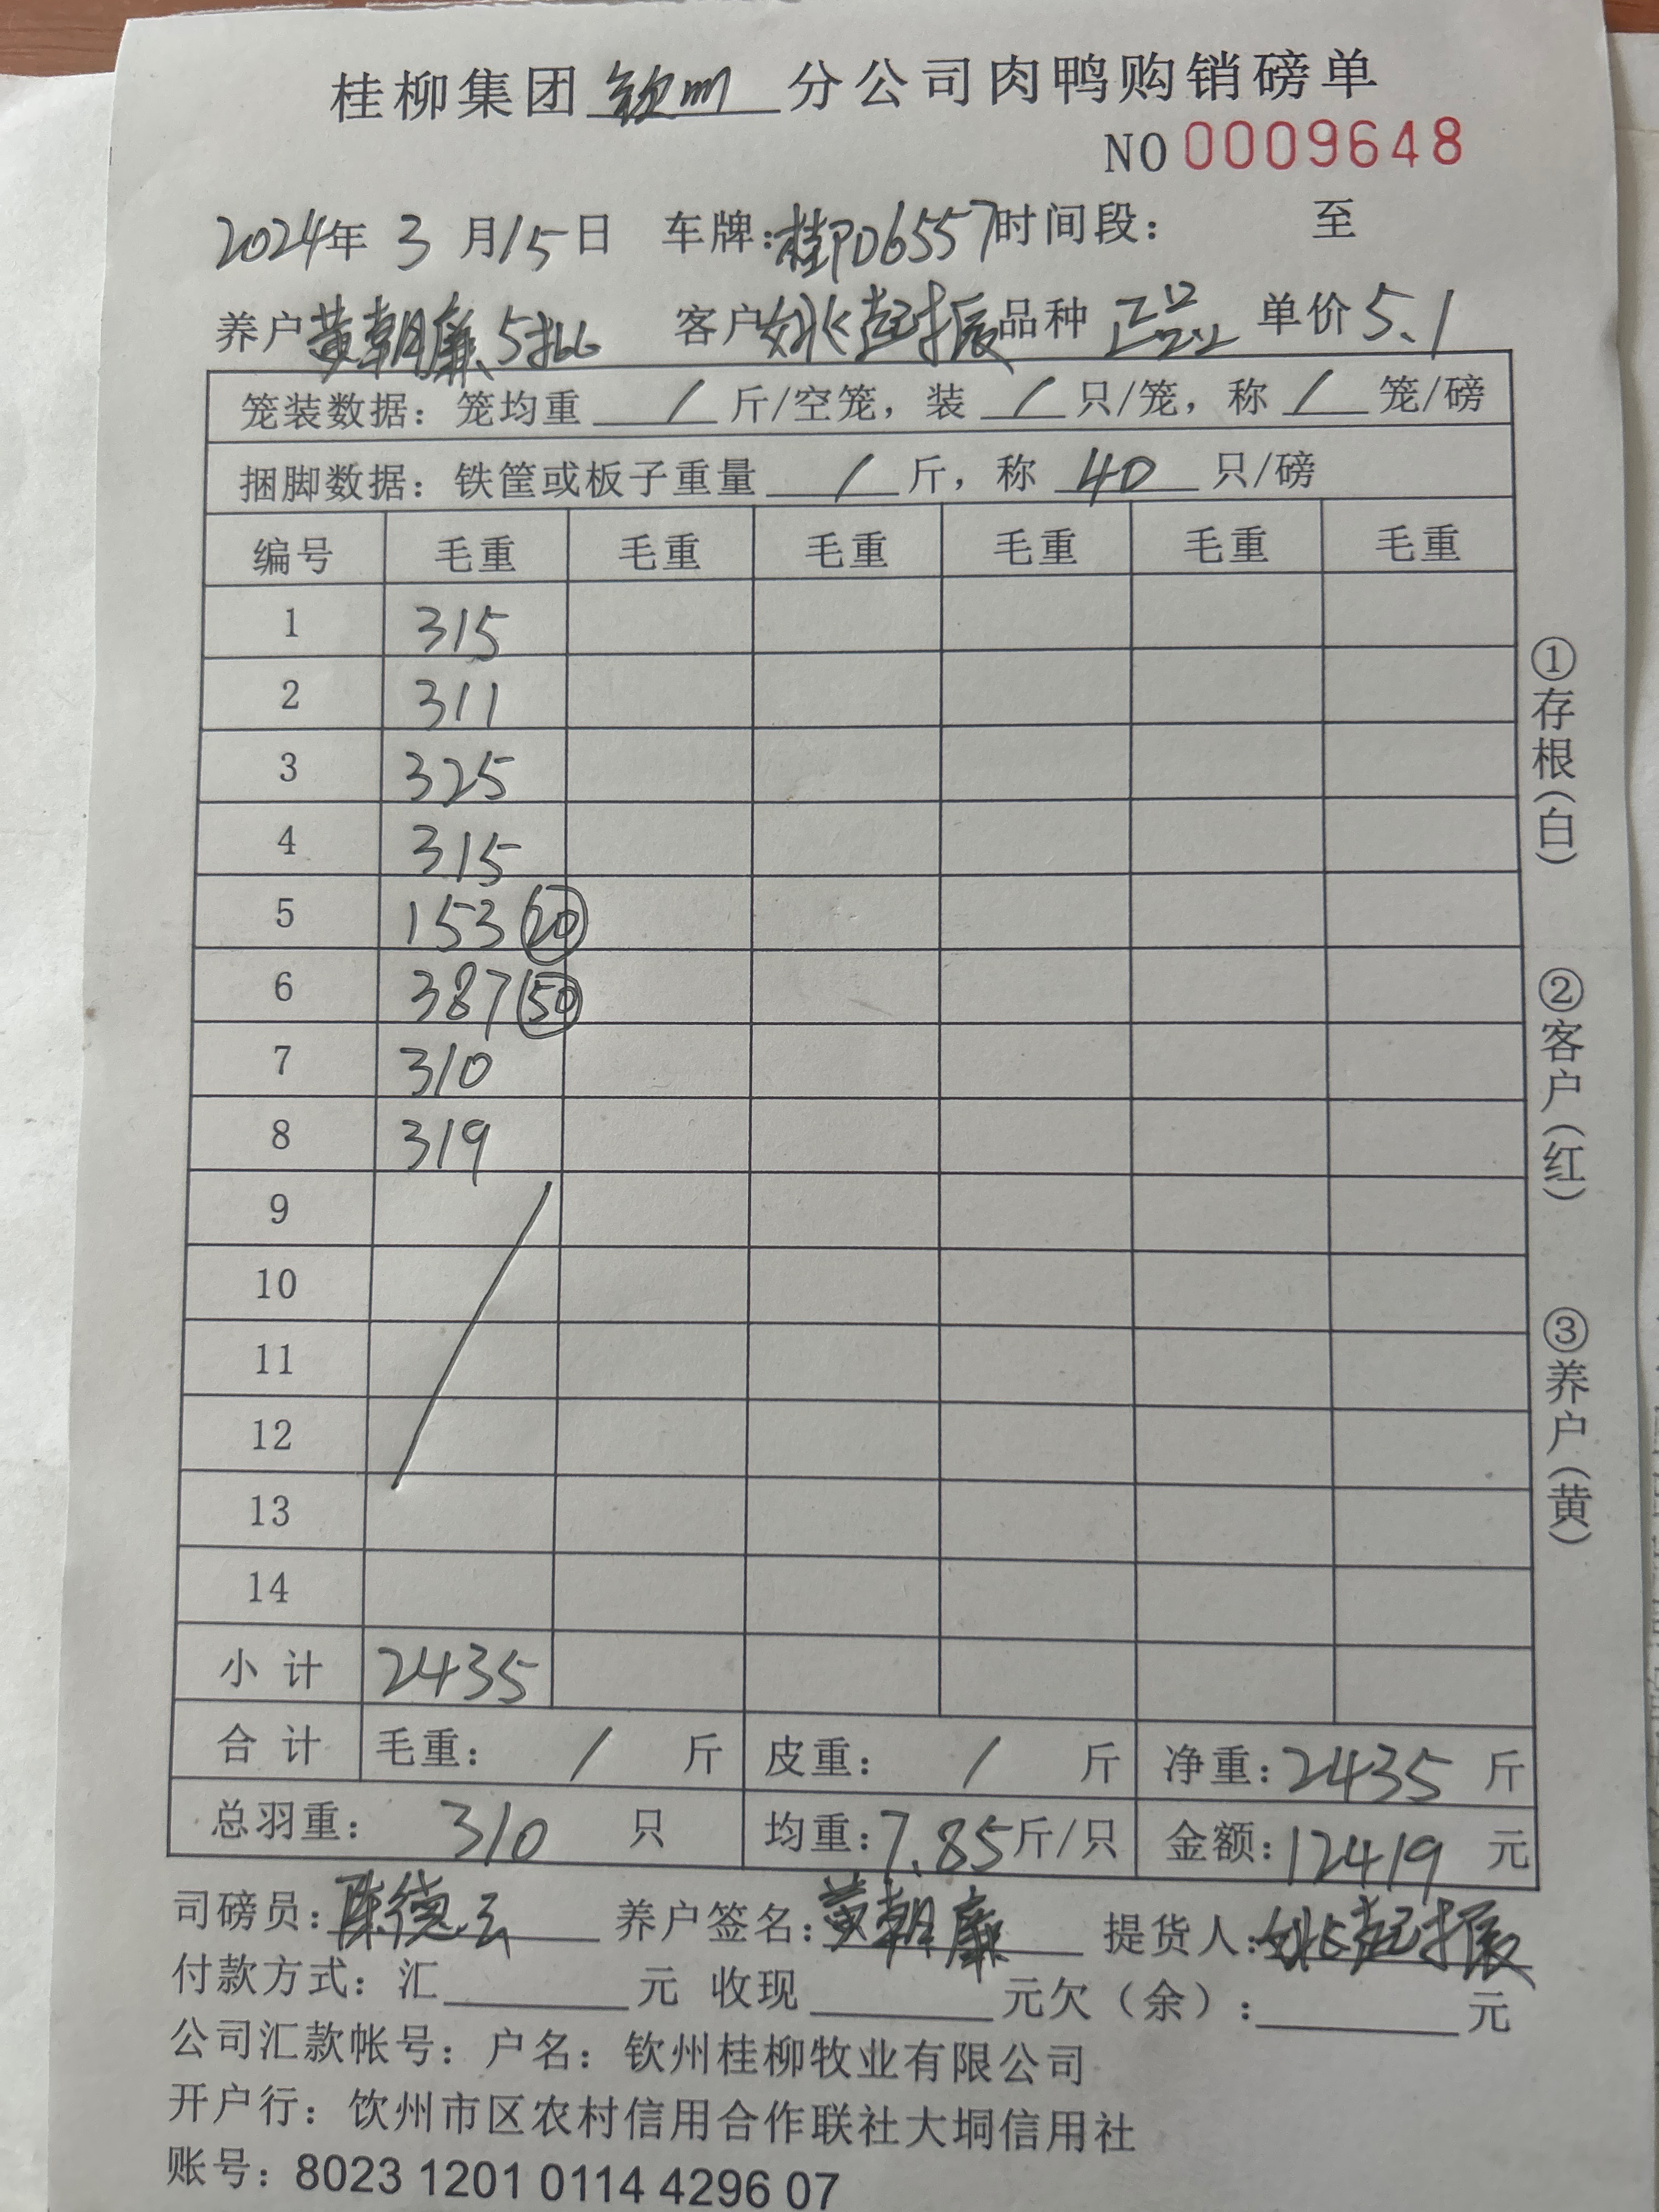 桂柳集团钦州分公司肉鸭购销磅单
NO 0009648
2024年 3 月15日 车牌:桂PD6557时间段: 至
养户黄朝廉5批 客户姚起振 品种 正品 单价5.1
笼装数据: 笼均重 / 斤/空笼, 装 / 只/笼, 称 / 笼/磅
捆脚数据: 铁筐或板子重量 / 斤, 称 40 只/磅
编号 毛重 毛重 毛重 毛重 毛重 毛重
1 315
2 311
3 325
4 315
5 153 ⑳
6 387 ㊿
7 310
8 319
9
10
11
12
13
14
小计 2435
合计 毛重: / 斤 皮重: / 斤 净重:2435 斤
总羽重: 310 只 均重:7.85斤/只 金额:12419 元
司磅员:陈德云 养户签名:黄朝廉 提货人:姚起振
付款方式: 汇 元 收现 元欠(余): 元
公司汇款帐号: 户名: 钦州桂柳牧业有限公司
开户行: 饮州市区农村信用合作联社大垌信用社
账号: 8023 1201 0114 4296 07
①存根(白)
②客户(红)
③养户(黄)